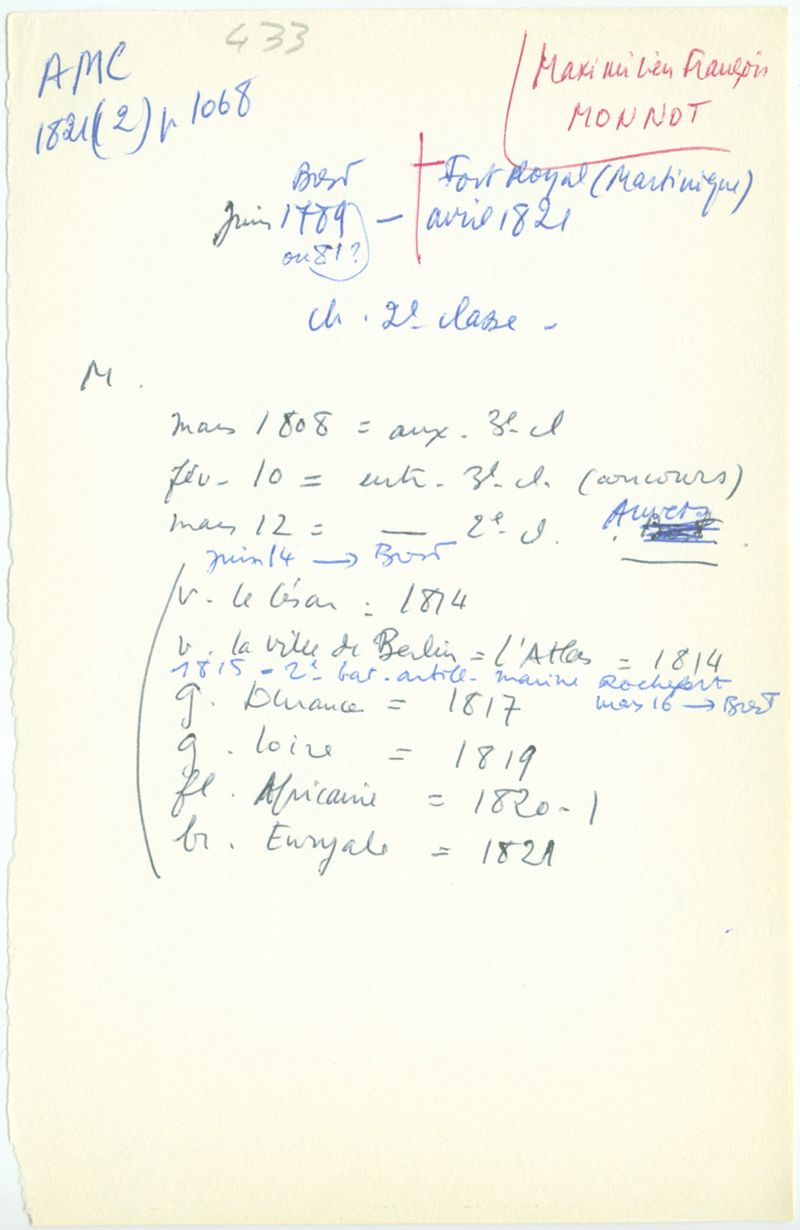 433
AMC
1821 (2) p 1068
Maximilien François
MONNOT
Brest
Juin 1789 —
ou 81 ?
Fort Royal (Martinique)
avril 1821
ch. 2e classe -
M.
mars 1808 = aux. 3e cl
fév. 10 = entr. 3e cl. (concours)
mars 12 = — 2e cl. Anvers
juin 14 → Brest
v. le César = 1814
v. la ville de Berlin = l'Atlas = 1814
1815 - 2e bat. artill. marine Rochefort
mars 16 → Brest
g. Durance = 1817
g. Loire = 1819
fl. Africaine = 1820-1
br. Euryale = 1821